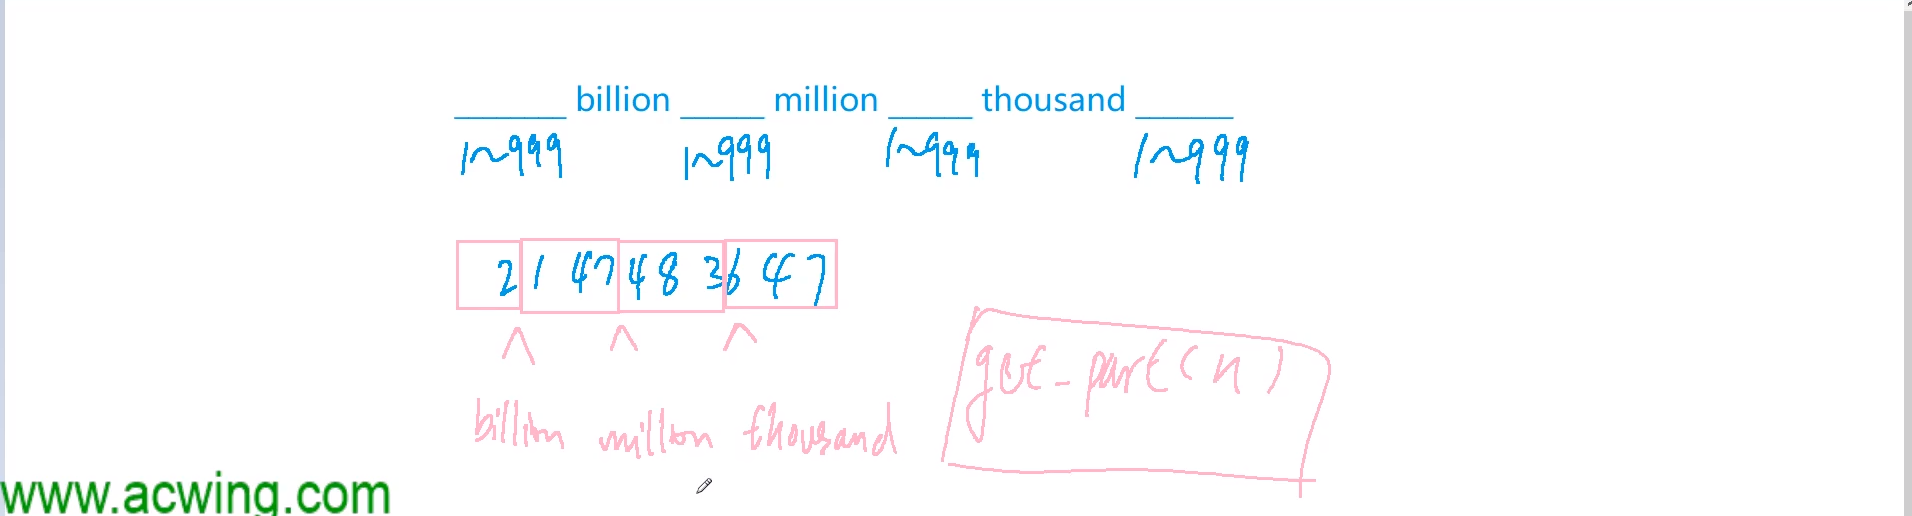 ______ billion _____ million _____ thousand ______
1~999 1~999 1~999 1~999
2 1 4 7 4 8 3 6 4 7
get_part(n)
billion million thousand
www.acwing.com